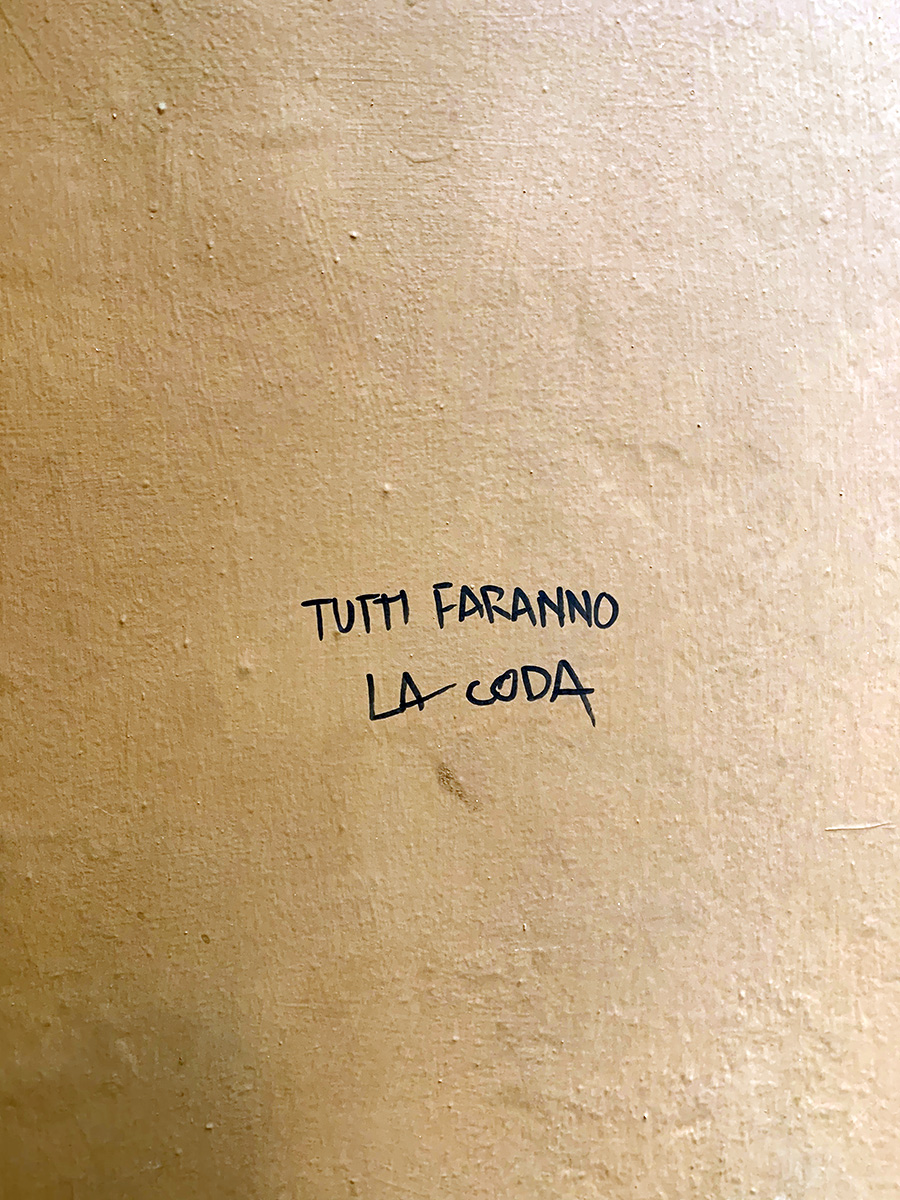 TUTTI FARANNO
LA CODA